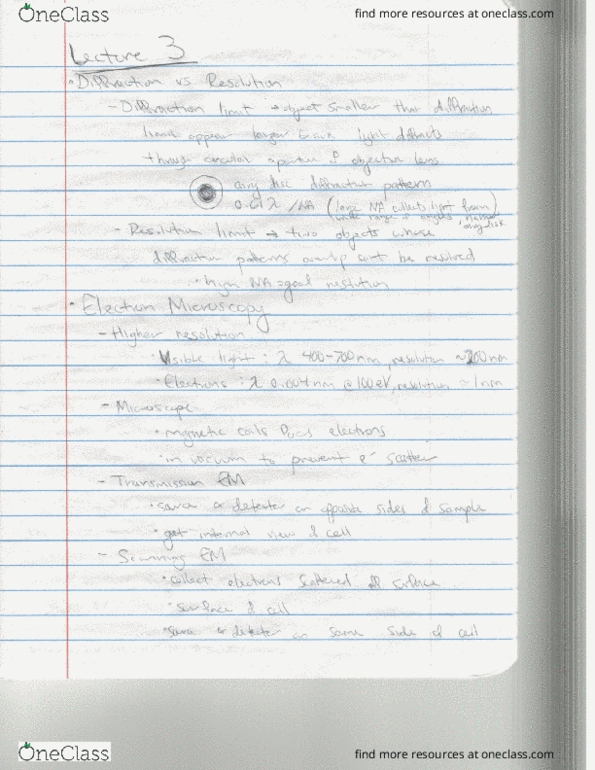 OneClass
find more resources at oneclass.com
Lecture 3
• Diffraction vs Resolution
- Diffraction limit → object smaller than diffraction
limit appear larger light diffracts
through circular aperture of objective lens
airy disc diffraction pattern
0.61λ/NA (large NA collects light from
wide range of angles,
- Resolution limit → two objects whose
diffraction patterns overlap can't be resolved
• high NA = good resolution
• Electron Microscopy
- Higher resolution
• Visible light : λ 400-700nm, resolution ~200nm
• Electrons : λ 0.004nm @ 100eV, resolution ~1nm
- Microscope
• magnetic coils focus electrons
• in vacuum to prevent e⁻ scatter
- Transmission EM
• source & detector on opposite sides of sample
• get internal view of cell
- Scanning EM
• collect electrons scattered off surface
• surface of cell
• source & detector on same side of cell
OneClass
find more resources at oneclass.com